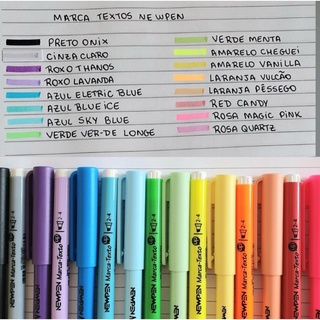 MARCA TEXTOS NEWPEN
PRETO ONIX
CINZA CLARO
ROXO THANOS
ROXO LAVANDA
AZUL ELETRIC BLUE
AZUL BLUE ICE
AZUL SKY BLUE
VERDE VER-DE LONGE
VERDE MENTA
AMARELO CHEGUEI
AMARELO VANILLA
LARANJA VULCÃO
LARANJA PÊSSEGO
RED CANDY
ROSA MAGIC PINK
ROSA QUARTZ
NEWPEN Marca-Texto 2-4
NEWPEN Marca-Texto 2-4
NEWPEN Marca-Texto 2-4
NEWPEN Marca-Texto 2-4
NEWPEN Marca-Texto 2-4
NEWPEN Marca-Texto 2-4
NEWPEN Marca-Texto 2-4